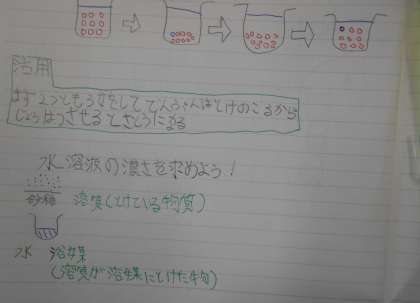 活用
まず2つともろ過をして でんぷんはとけのこるから
じょうはつさせるとさとうになる
水溶液の濃さを求めよう!
砂糖 溶質(とけている物質)
水 溶媒
(溶質が溶媒にとけた物)